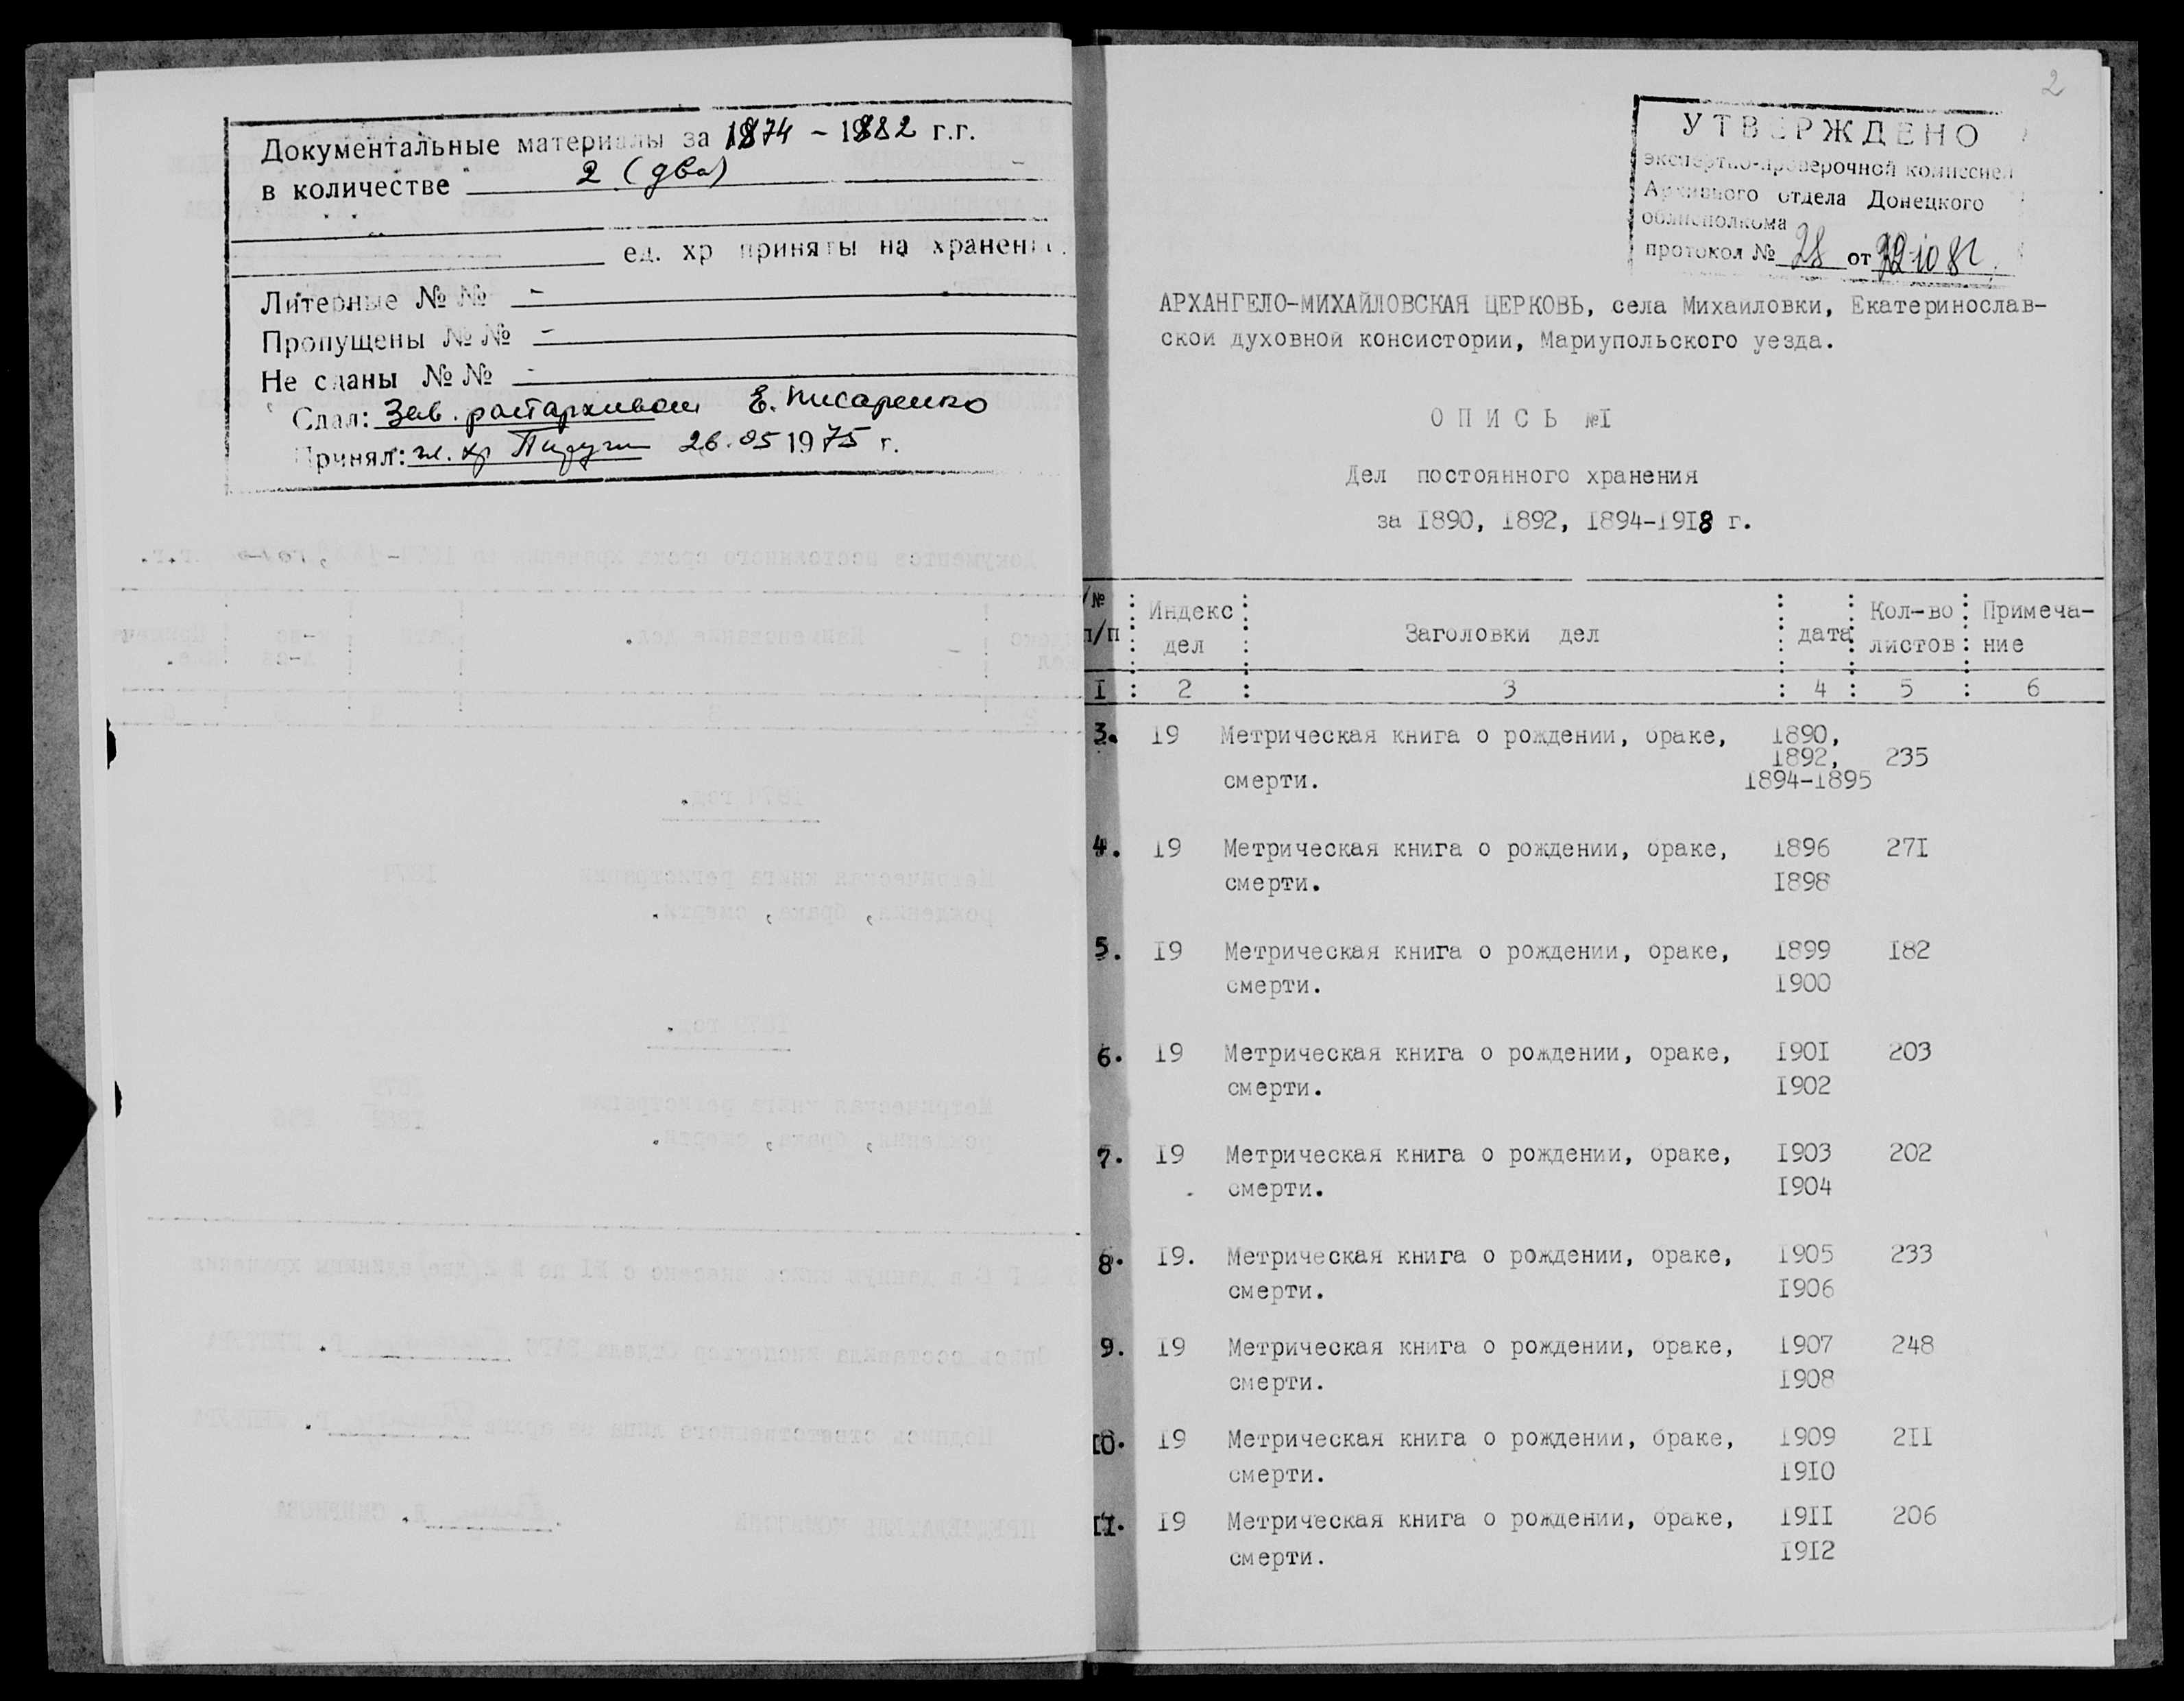 Документальные материалы за 1874 – 1882 г.г.
в количестве 2 (два)
ед. хр приняты на хранени
Литерные №№ –
Пропущены №№ –
Не сданы №№ –
Сдал: Зав. райархивом Е. Писаренко
Принял: гл. хр 26.05 1975 г.
2
УТВЕРЖДЕНО
экспертно-проверочной комиссией
Архивного отдела Донецкого
облисполкома
протокол № 28 от
АРХАНГЕЛО-МИХАЙЛОВСКАЯ ЦЕРКОВЬ, села Михаиловки, Екатеринослав-
ской духовной консистории, Мариупольского уезда.
ОПИСЬ №I
Дел постоянного хранения
за 1890, 1892, 1894-1918 г.
№ п/п Индекс дел Заголовки дел дата Кол-во листов Примеча-ние
I 2 3 4 5 6
3. 19 Метрическая книга о рождении, браке, 1890,
1892, 235
смерти. 1894-1895
4. 19 Метрическая книга о рождении, браке, 1896 271
смерти. 1898
5. 19 Метрическая книга о рождении, браке, 1899 182
смерти. 1900
6. 19 Метрическая книга о рождении, браке, 1901 203
смерти. 1902
7. 19 Метрическая книга о рождении, браке, 1903 202
смерти. 1904
8. 19. Метрическая книга о рождении, браке, 1905 233
смерти. 1906
9. 19 Метрическая книга о рождении, браке, 1907 248
смерти. 1908
10. 19 Метрическая книга о рождении, браке, 1909 211
смерти. 1910
11. 19 Метрическая книга о рождении, браке, 1911 206
смерти. 1912